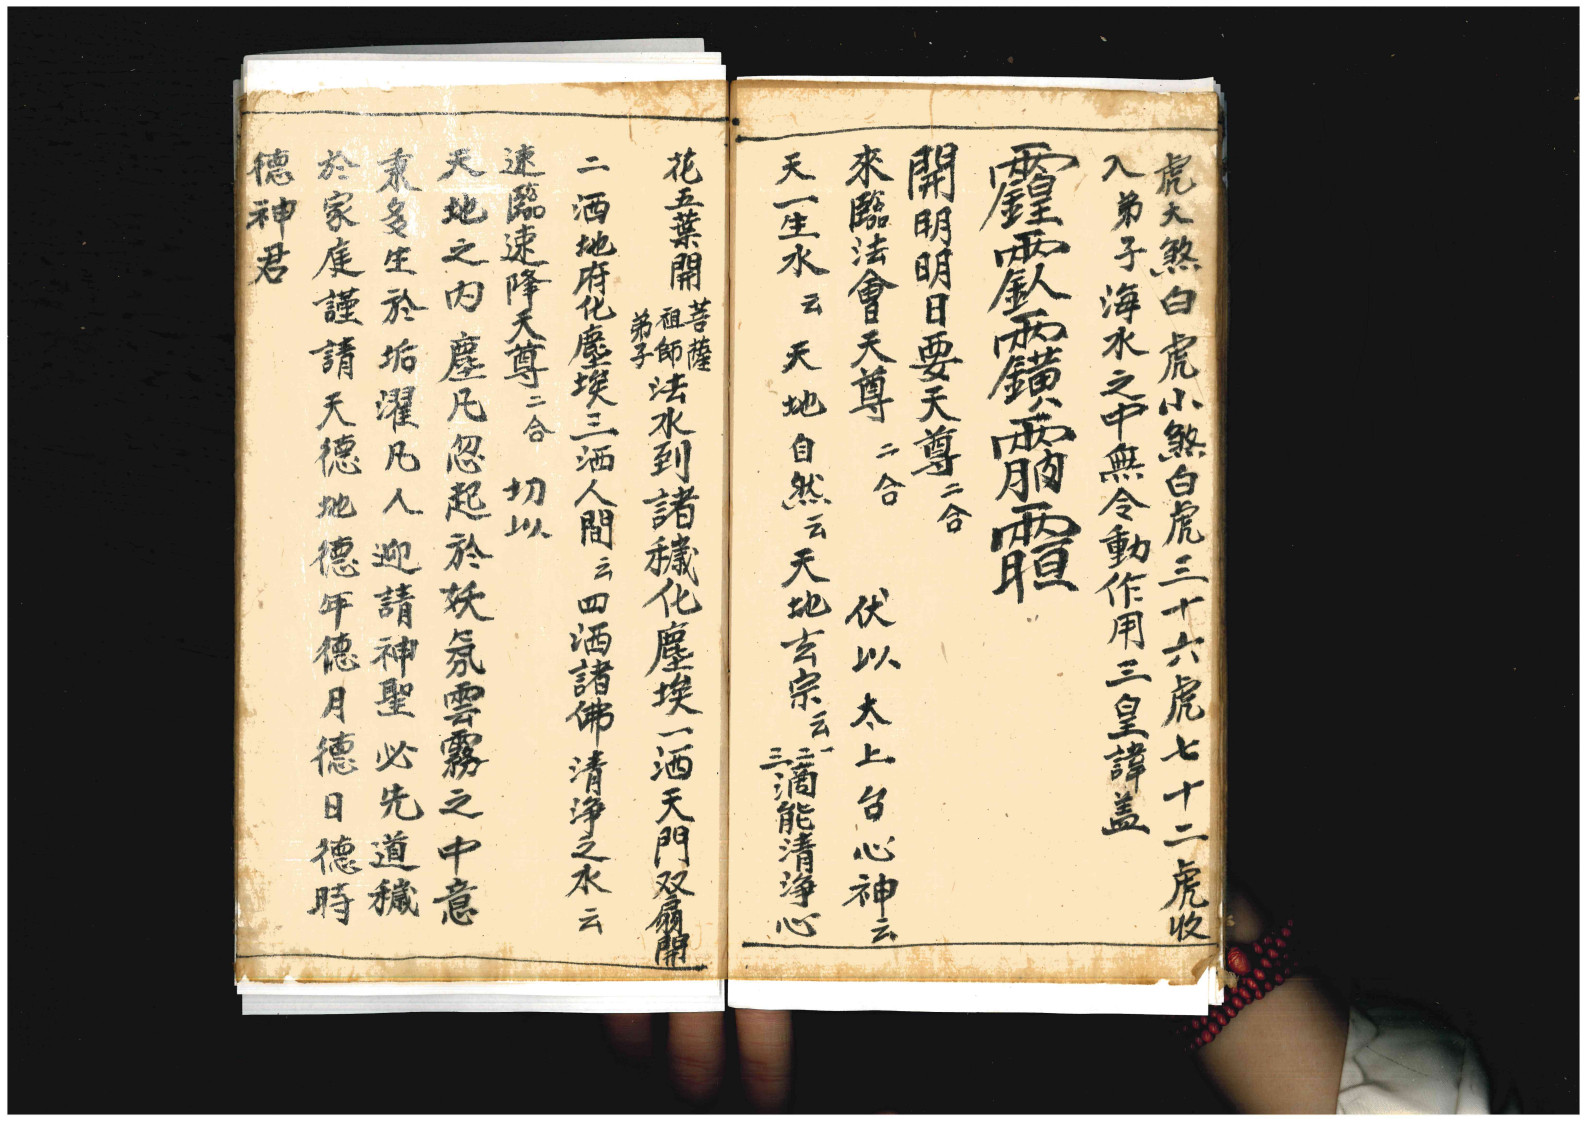 虎大煞白虎小煞白虎三十六虎七十二虎收
入弟子海水之中無令動作用三皇諱盖
開明明日要天尊二合
來臨法會天尊二合 伏以太上台心神云
天一生水云天地自然云天地玄宗云一二三滴能清浄心
花五葉開菩薩祖師弟子法水到諸穢化塵埃一洒天門双扇開
二洒地府化塵埃三洒人間云四洒諸佛清浄之水云
速臨速降天尊二合 切以
天地之内塵凡忽起於妖氛雲霧之中意
秉多生於垢濯凡人迎請神聖必先道穢
於家庭謹請天德地德年德月德日德時
德神君